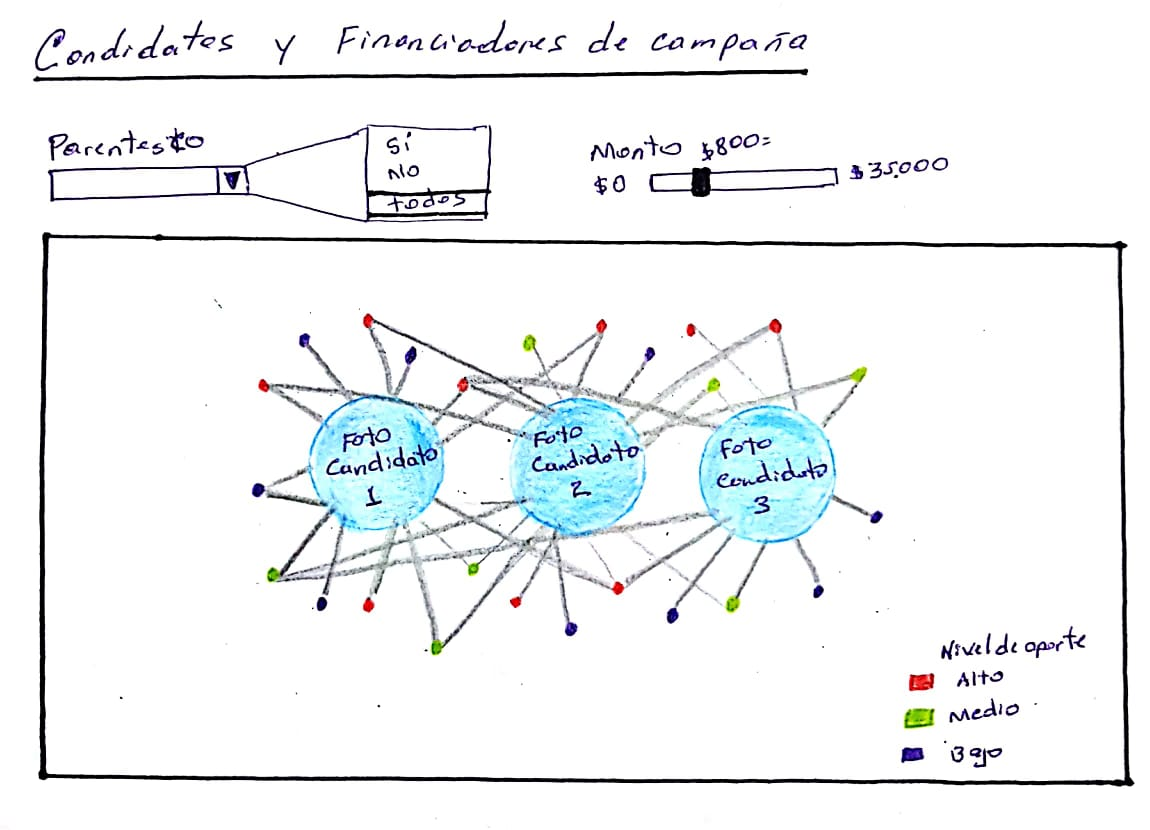 Candidatos y Financiadores de campaña
Parentesco
Sí
No
todos
Monto $800=
$0
$35.000
Foto
Candidato
1
Foto
Candidato
2
Foto
Candidato
3
Nivel de aporte
Alto
Medio
Bajo